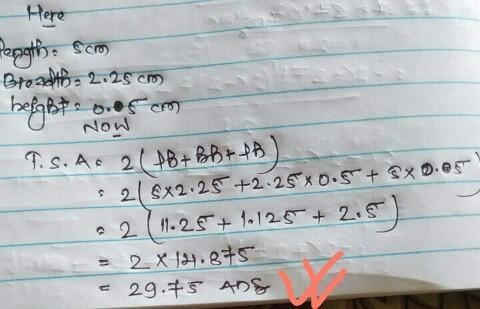 Here
length = 5cm
Breadth = 2.25 cm
height = 0.05 cm
NOW
T.S.A = 2(lB+BB+lB)
= 2(5×2.25+2.25×0.5+5×0.05)
= 2(11.25+1.125+2.5)
= 2×14.875
= 29.75 Ans